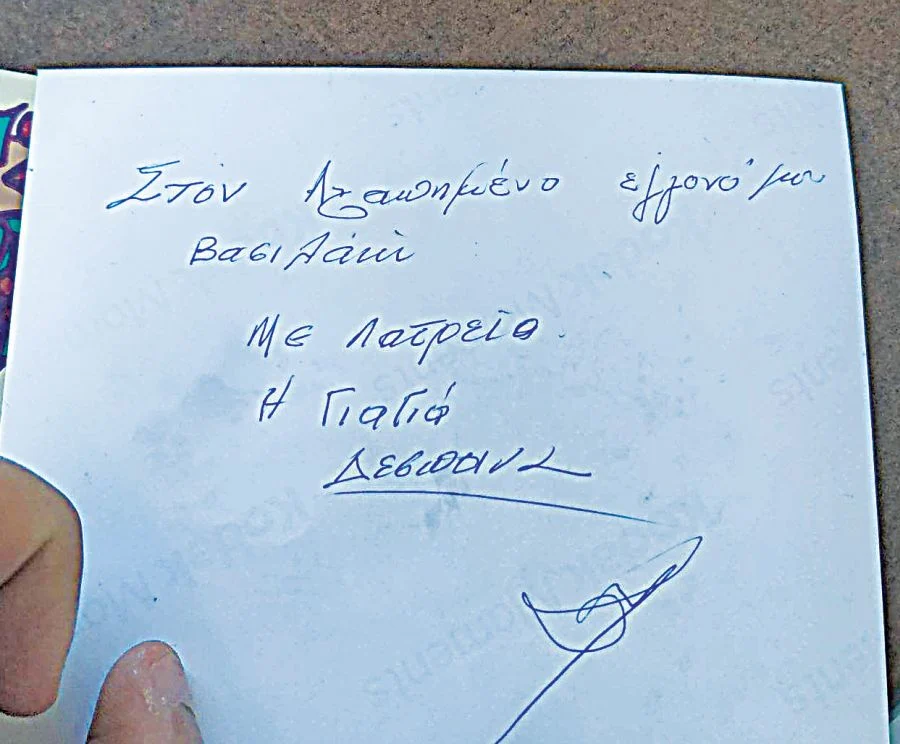 Στον Αγαπημένο εγγονό μου
Βασιλάκη
Με λατρεία
Η Γιαγιά
Δέσποινα